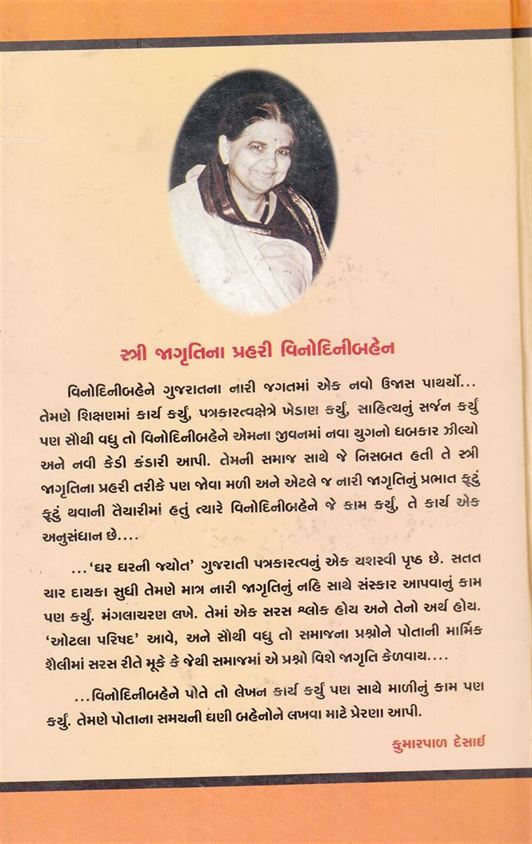 સ્ત્રી જાગૃતિના પ્રહરી વિનોદિનીબહેન
વિનોદિનીબહેને ગુજરાતના નારી જગતમાં એક નવો ઉજાસ પાથર્યો...
તેમણે શિક્ષણમાં કાર્ય કર્યું, પત્રકારત્વક્ષેત્રે ખેડાણ કર્યું, સાહિત્યનું સર્જન કર્યું
પણ સૌથી વધુ તો વિનોદિનીબહેને એમના જીવનમાં નવા યુગનો ધબકાર ઝીલ્યો
અને નવી કેડી કંડારી આપી. તેમની સમાજ સાથે જે નિસબત હતી તે સ્ત્રી
જાગૃતિના પ્રહરી તરીકે પણ જોવા મળી અને એટલે જ નારી જાગૃતિનું પ્રભાત ફૂટું
ફૂટું થવાની તૈયારીમાં હતું ત્યારે વિનોદિનીબહેને જે કામ કર્યું, તે કાર્ય એક
અનુસંધાન છે....
...‘ઘર ઘરની જ્યોત’ ગુજરાતી પત્રકારત્વનું એક યશસ્વી પૃષ્ઠ છે. સતત
ચાર દાયકા સુધી તેમણે માત્ર નારી જાગૃતિનું નહિ સાથે સંસ્કાર આપવાનું કામ
પણ કર્યું. મંગલાચરણ લખે. તેમાં એક સરસ શ્લોક હોય અને તેનો અર્થ હોય.
‘ઓટલા પરિષદ’ આવે, અને સૌથી વધુ તો સમાજના પ્રશ્નોને પોતાની માર્મિક
શૈલીમાં સરસ રીતે મૂકે કે જેથી સમાજમાં એ પ્રશ્નો વિશે જાગૃતિ કેળવાય....
...વિનોદિનીબહેને પોતે તો લેખન કાર્ય કર્યું પણ સાથે માળીનું કામ પણ
કર્યું. તેમણે પોતાના સમયની ઘણી બહેનોને લખવા માટે પ્રેરણા આપી.
કુમારપાળ દેસાઈ